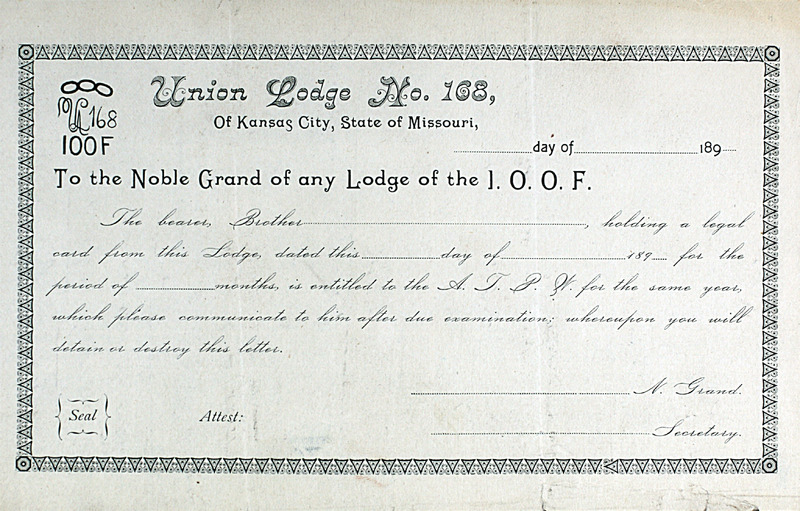 Union Lodge No. 168,
UL 168
Of Kansas City, State of Missouri,
IOOF
day of 189
To the Noble Grand of any Lodge of the I. O. O. F.
The bearer, Brother , holding a legal
card from this Lodge, dated this day of 189 for the
period of months, is entitled to the A. T. P. W. for the same year,
which please communicate to him after due examination; whereupon you will
detain or destroy this letter.
N. Grand.
Seal Attest:
Secretary.